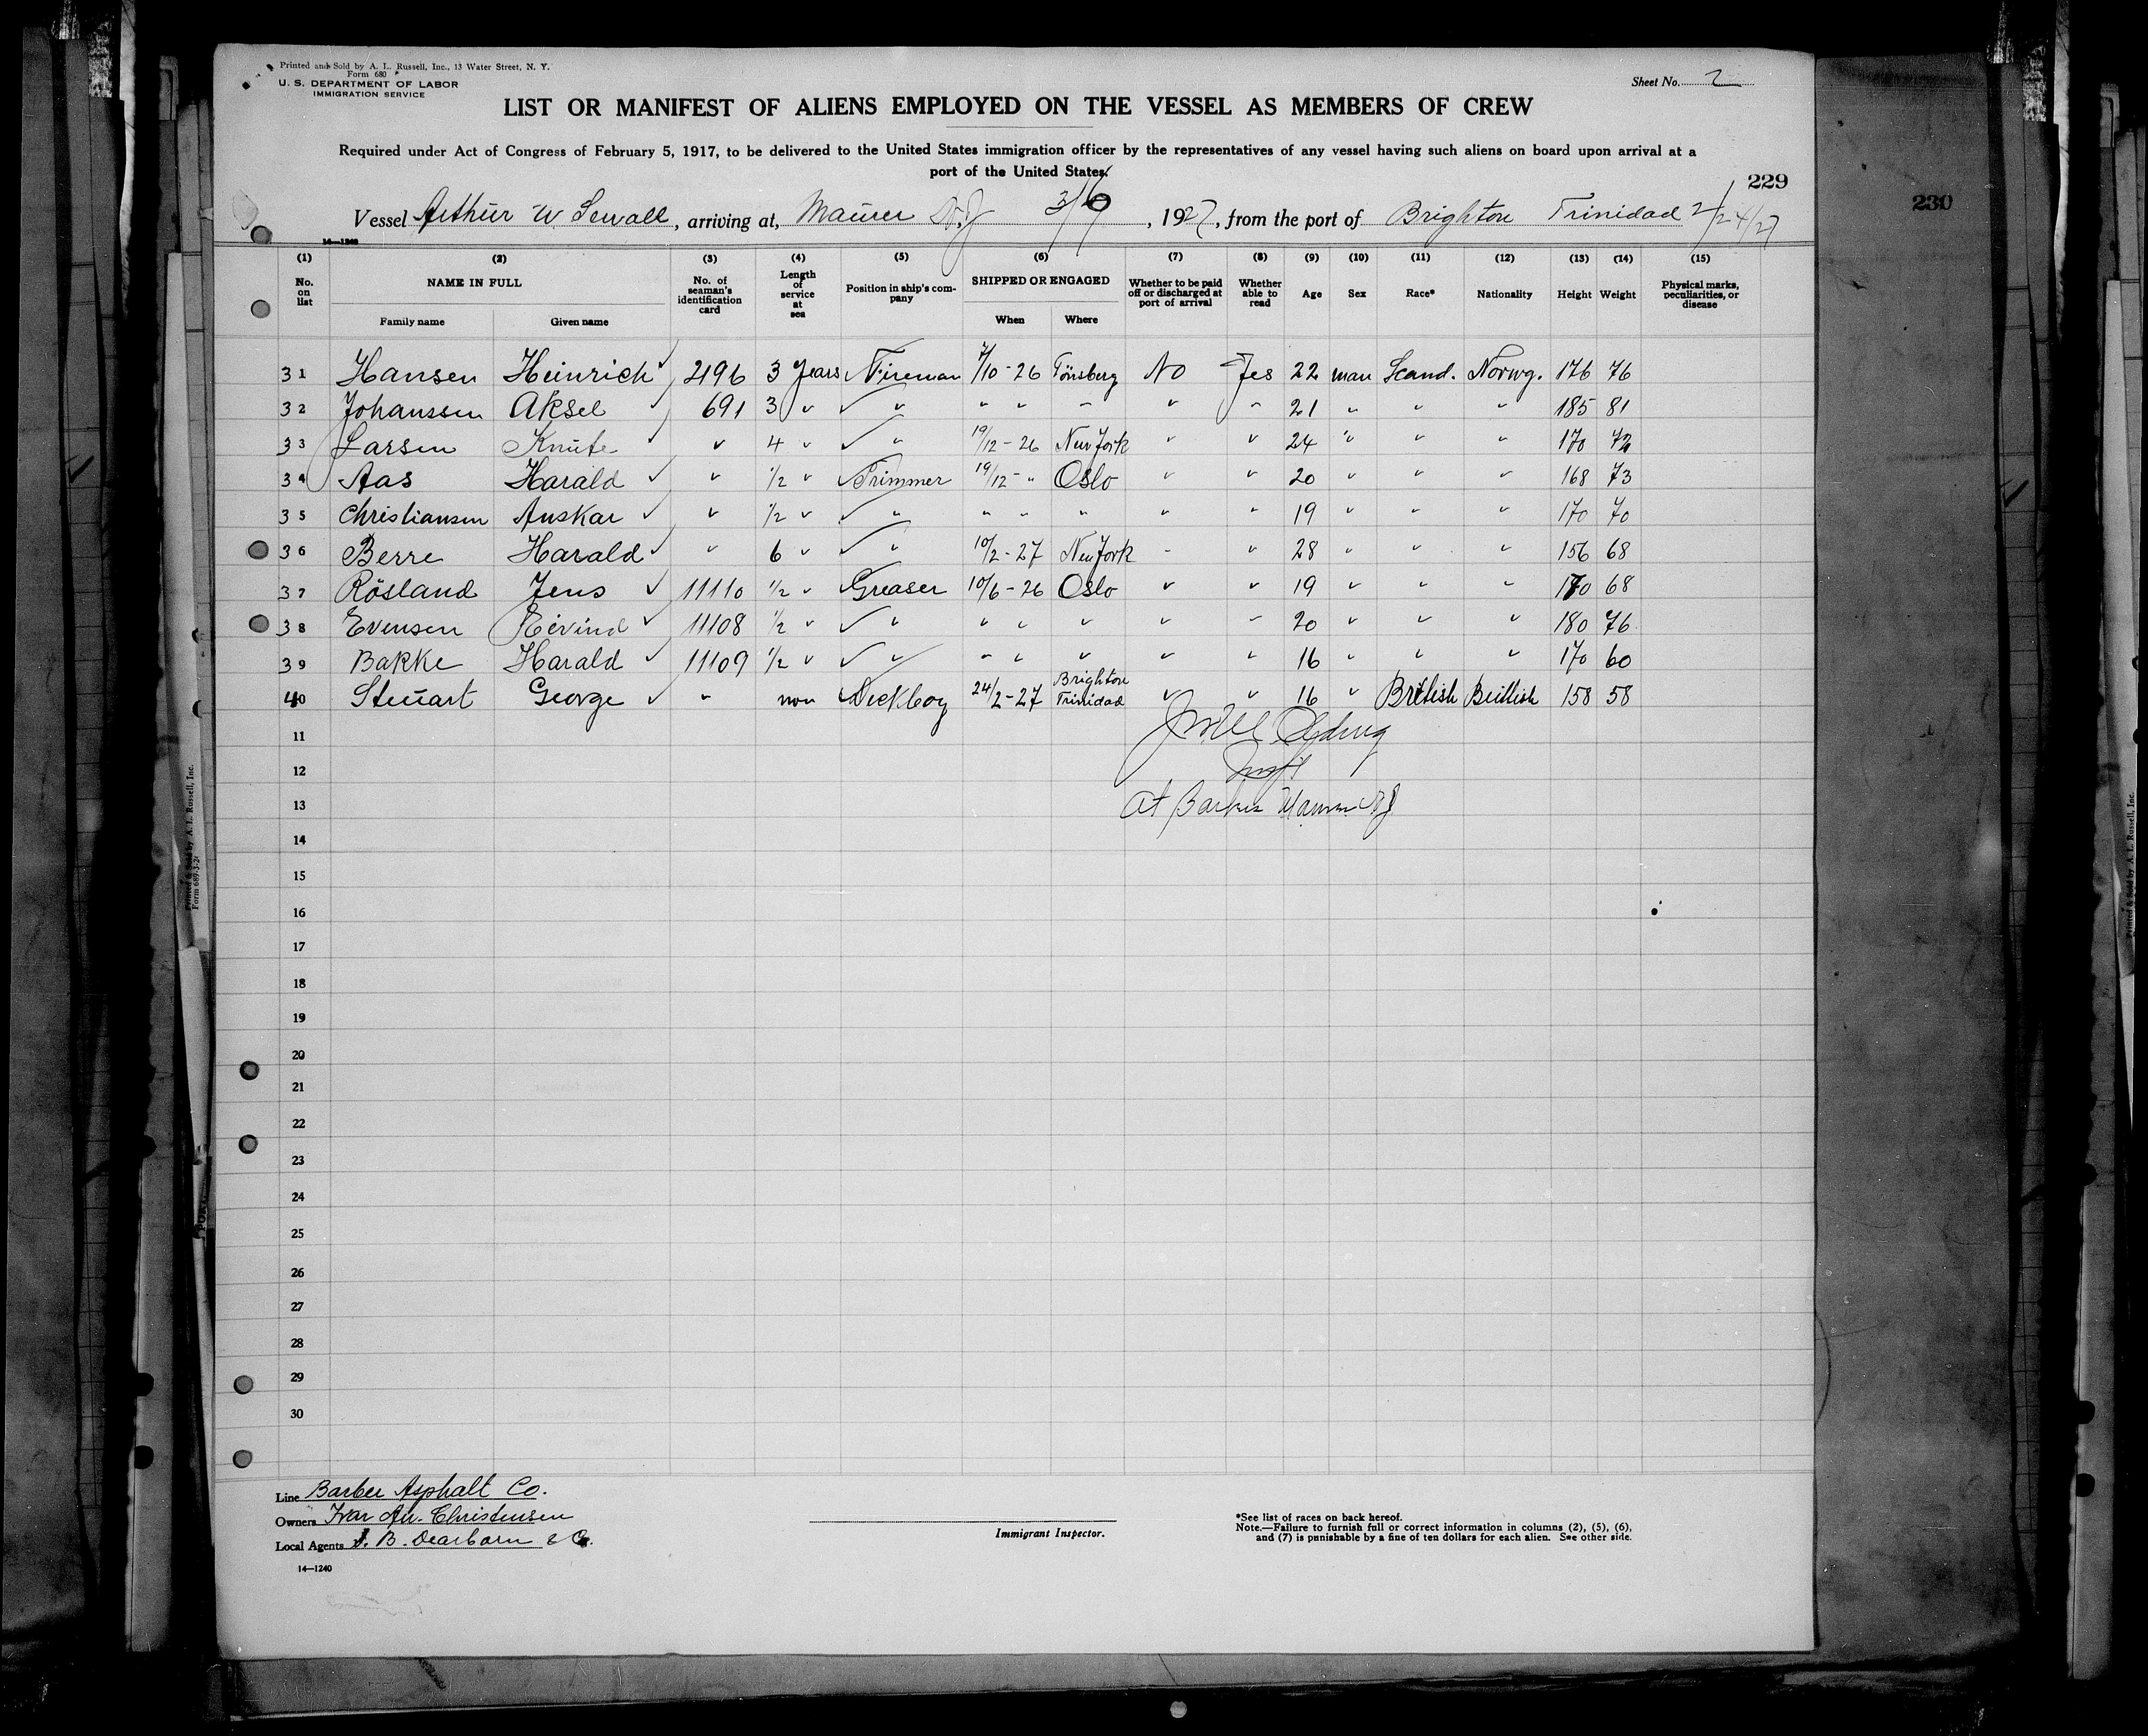 Printed and Sold by A. L. Russell, Inc., 13 Water Street, N. Y.
Form 680
U. S. DEPARTMENT OF LABOR
IMMIGRATION SERVICE
Sheet No. 2
LIST OR MANIFEST OF ALIENS EMPLOYED ON THE VESSEL AS MEMBERS OF CREW
Required under Act of Congress of February 5, 1917, to be delivered to the United States immigration officer by the representatives of any vessel having such aliens on board upon arrival at a
port of the United States.
229
230
Vessel Arthur W Sewall, arriving at, Maurer N.J 3/6, 1927, from the port of Brighton Trinidad 2/24/27
14—1240
(1) (2) (3) (4) (5) (6) (7) (8) (9) (10) (11) (12) (13) (14) (15)
No. on list NAME IN FULL Family name Given name No. of seaman's identification card Length of service at sea Position in ship's company SHIPPED OR ENGAGED When Where Whether to be paid off or discharged at port of arrival Whether able to read Age Sex Race* Nationality Height Weight Physical marks, peculiarities, or disease
31 Hansen Heinrich 2196 3 Years Fireman 7/10-26 Tönsberg No Yes 22 man Scand. Norwg. 176 76
32 Johanssen Aksel 691 3 " " " " " " " 21 " " " 185 81
33 Larsen Knute " 4 " " 19/12-26 New York " " 24 " " " 170 72
34 Aas Harald " 1/2 " Trimmer 19/12- " Oslo " " 20 " " " 168 73
35 Christiansen Anskar " 1/2 " " " " " " " 19 " " " 170 70
36 Berre Harald " 6 " " 10/2-27 New York " " 28 " " " 156 68
37 Rösland Jens 11110 1/2 " Greaser 10/6-26 Oslo " " 19 " " " 170 68
38 Evensen Eivind 11108 1/2 " " " " " " " 20 " " " 180 76
39 Bakke Harald 11109 1/2 " " " " " " " 16 " " " 170 60
40 Steuart George " non Deckboy 24/2-27 Brighton Trinidad " " 16 " British British 158 58
11
12
13 At Barber
14
15
16
17
18
19
20
21
22
23
24
25
26
27
28
29
30
Line Barber Asphalt Co.
Owners Ivar An. Christensen
Local Agents J. B. Dearborn & Co.
14—1240
Immigrant Inspector.
*See list of races on back hereof.
Note.—Failure to furnish full or correct information in columns (2), (5), (6),
and (7) is punishable by a fine of ten dollars for each alien. See other side.